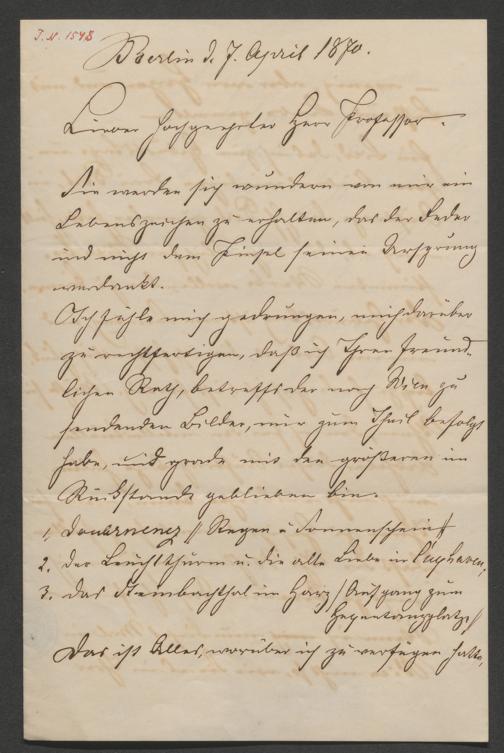 J.N. 1548
Berlin d. 7. April 1870.
Lieber hochgeehrter Herr Professor.
Sie werden sich wundern von mir ein
Lebenszeichen zu erhalten, das der Feder
und nicht dem Pinsel seinen Ursprung
verdankt.
Ich fühle mich gedrungen, mich darüber
zu rechtfertigen, daß ich Ihren freund-
lichen Rath, betreffs der nach Wien zu
sendenden Bilder, nur zum Theil befolgt
habe, und grade mit den größeren im
Rückstande geblieben bin.
1, Douarnenez // Regen u Sonnenschein //
2. der Leuchtthurm u. die alte Liebe in Cuxhaven,
3. das Steinbachthal im Harz / Aufgang zum
Hexentanzplatz /
Das ist Alles, worüber ich zu verfügen hatte,